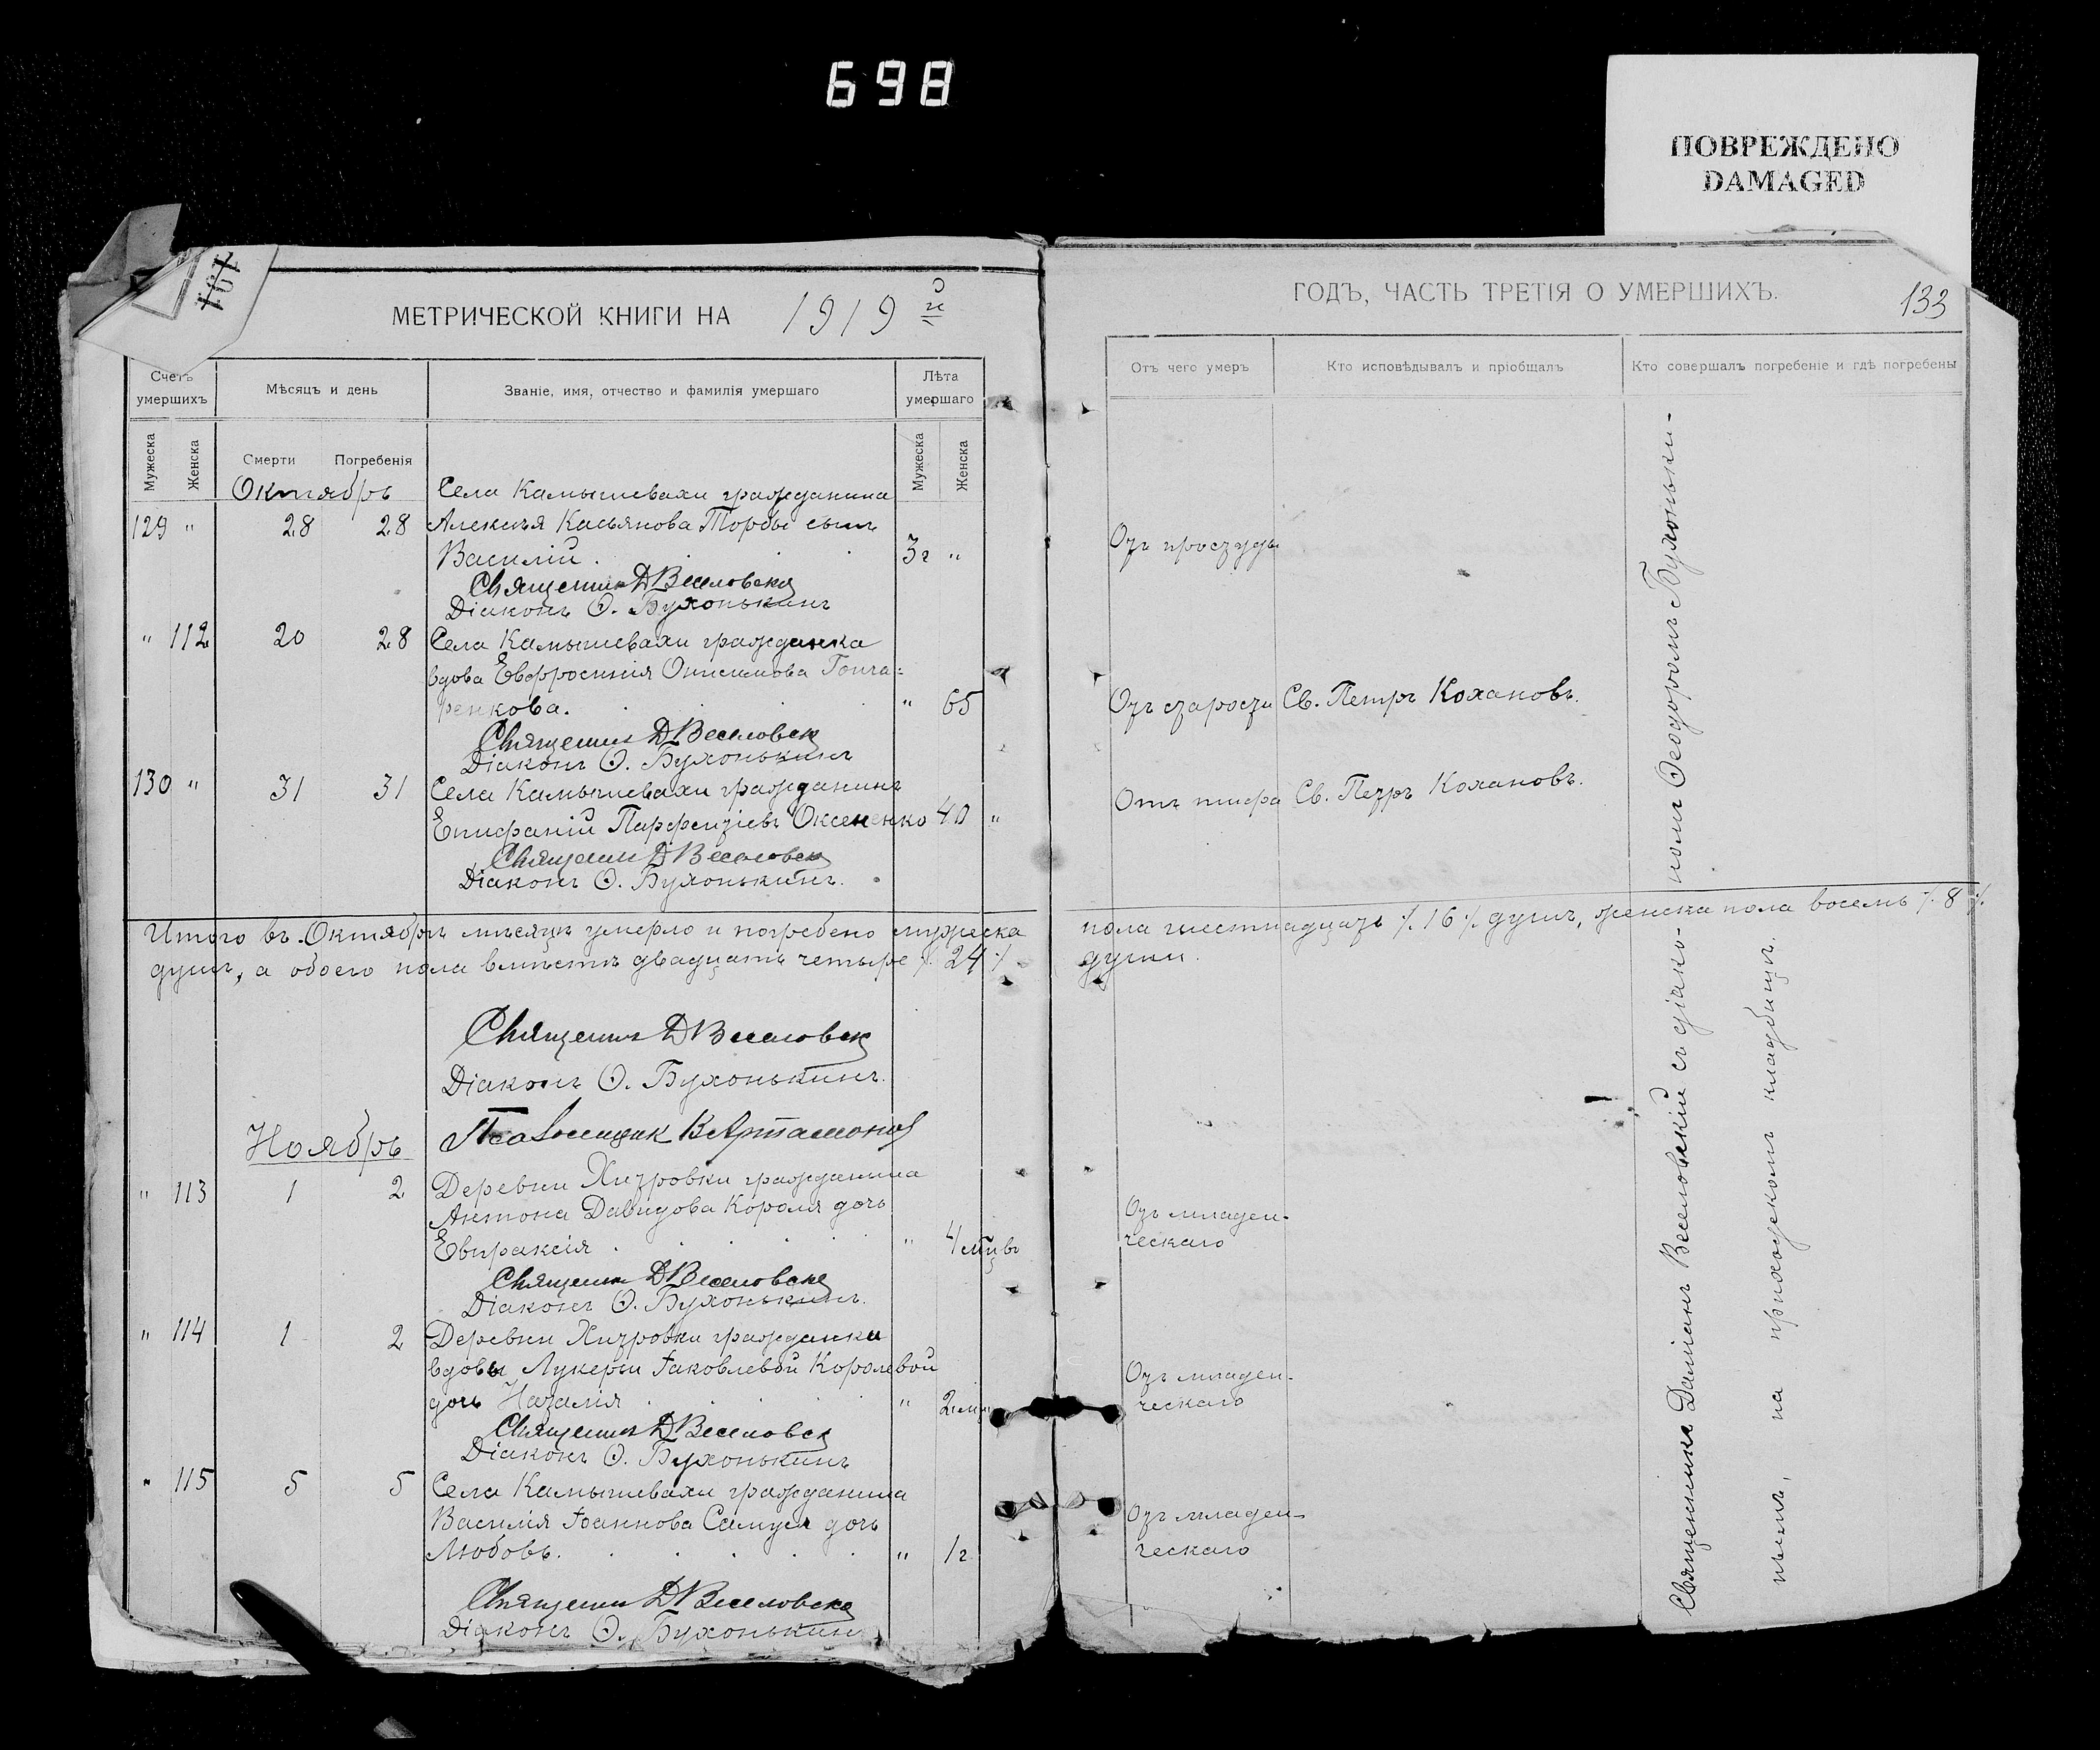 698
ПОВРЕЖДЕНО
DAMAGED
181
МЕТРИЧЕСКОЙ КНИГИ НА 1919 й
Счетъ умершихъ
Мѣсяцъ и день
Званіе, имя, отчество и фамилія умершаго
Лѣта умершаго
Мужеска
Женска
Смерти
Погребенія
Мужеска
Женска
Октябрь
Села Камышевахи гражданина
129 " 28 28 Алексѣя Касьянова Торбы сынъ
Василій. 3 г "
Священник Д Веселовск
Діаконъ Ѳ. Бухонькинъ
" 112 20 28 Села Камышевахи гражданка
вдова Евфросинія Онисимова Гонча-
ренкова. " 65
Священник Д Веселовск
Діаконъ Ѳ. Бухонькинъ
130 " 31 31 Села Камышевахи гражданинъ
Епифаній Парфентіевъ Оксененко 40 "
Священник Д Веселовск
Діаконъ Ѳ. Бухонькинъ.
Итого въ Октябрѣ мѣсяцѣ умерло и погребено мужеска
душъ, а обоего пола вмѣстѣ двадцать четыре ·/. 24 ·/.
Священник Д Веселовск
Діаконъ Ѳ. Бухонькинъ.
Псаломщик В Артамонов
Ноябрь
" 113 1 2 Деревни Хитровки гражданина
Антона Давидова Короля дочь
Евпраксія . " 4 м
Священник Д Веселовск
Діаконъ Ѳ. Бухонькинъ.
" 114 1 2 Деревни Хитровки гражданки
вдовы Лукерьи Іаковлевой Королевой
дочь Наталія . " 2 м
Священник Д Веселовск
Діаконъ Ѳ. Бухонькинъ
" 115 5 5 Села Камышевахи гражданина
Василія Іоаннова Самуся дочь
Любовь. " 1 г
Священник Д Веселовск
Діаконъ Ѳ. Бухонькин
ГОДЪ, ЧАСТЬ ТРЕТІЯ О УМЕРШИХЪ.
133
Отъ чего умеръ
Кто исповѣдывалъ и пріобщалъ
Кто совершалъ погребеніе и гдѣ погребены
Отъ простуды
Отъ старости Св. Петръ Кохановъ.
Отъ тифа Св. Петръ Кохановъ.
пола шестнадцать ·/. 16 ·/. душъ, женска пола восемь ·/. 8 ·/.
души.
Отъ младен-
ческаго
Отъ младен-
ческаго
Отъ младен-
ческаго
Священникъ Даміанъ Веселовскій съ діако- номъ Ѳеодоромъ Бухоньки-
нымъ, на приходскомъ кладбищѣ.